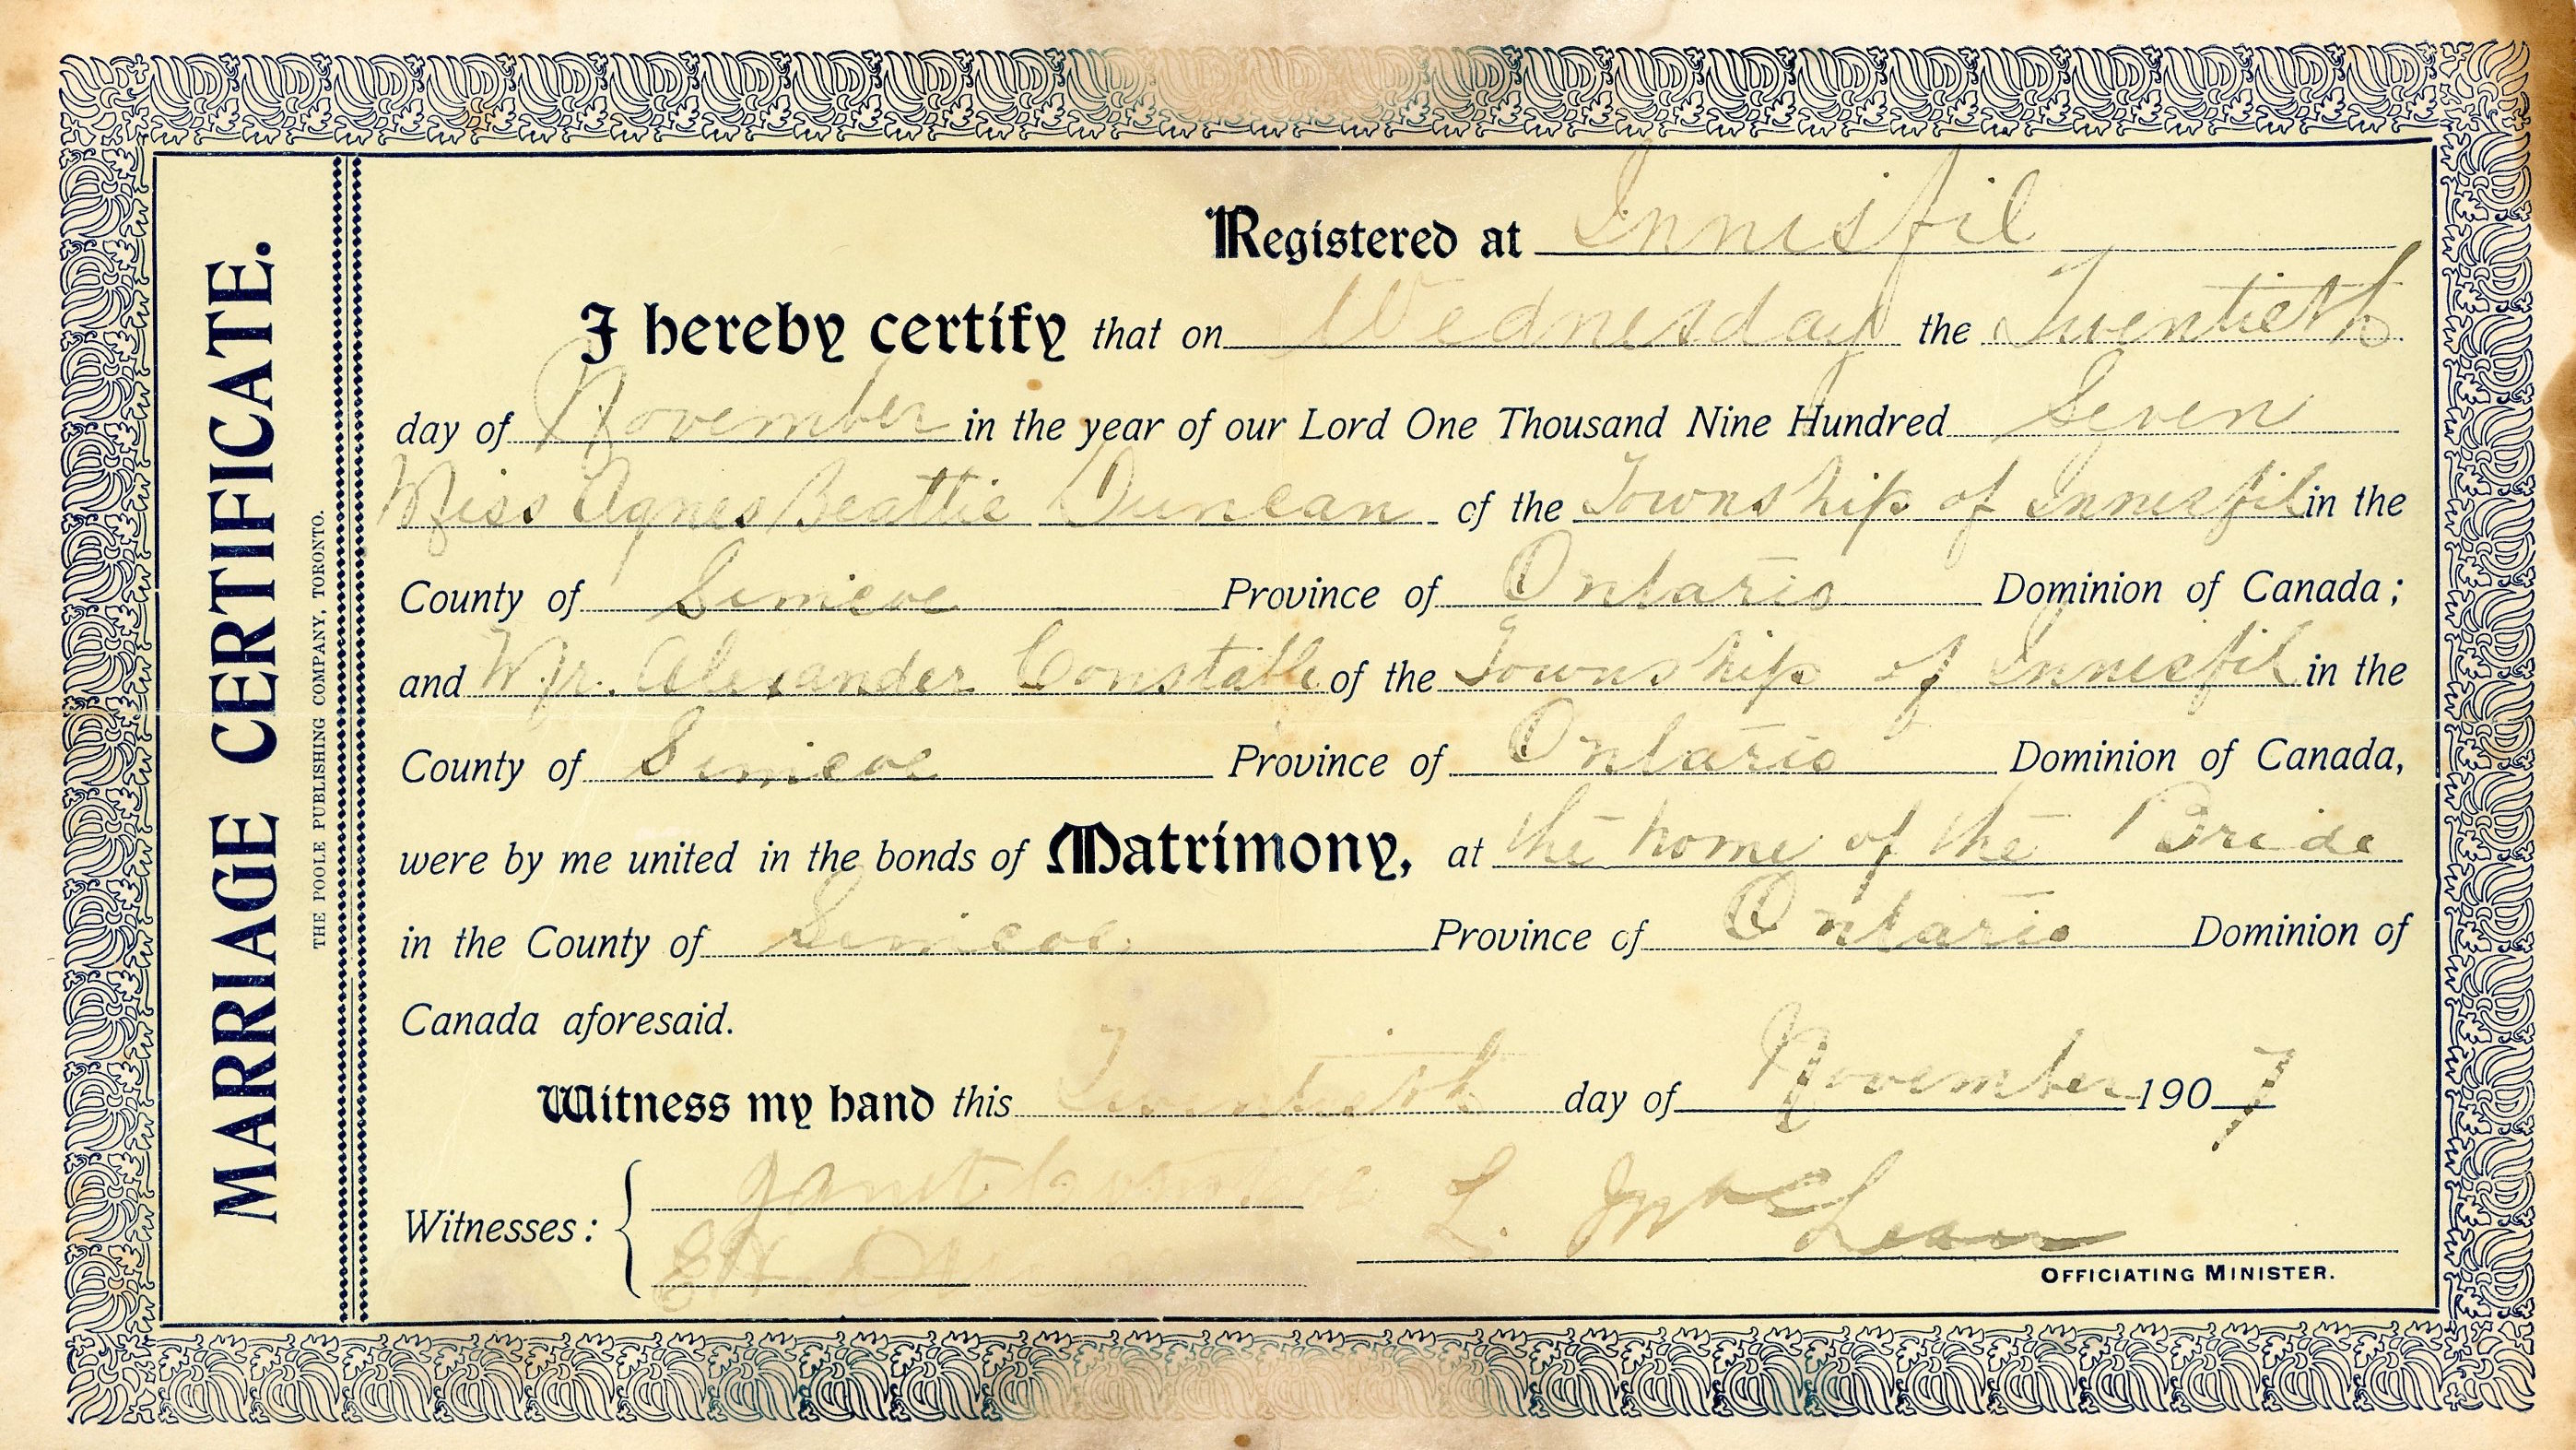 MARRIAGE CERTIFICATE.
THE POOLE PUBLISHING COMPANY, TORONTO.
Registered at Innisfil
I hereby certify that on Wednesday the Twentieth
day of November in the year of our Lord One Thousand Nine Hundred Seven
Miss Agnes Beattie Duncan of the Township of Innisfil in the
County of Simcoe Province of Ontario Dominion of Canada;
and Mr. Alexander Constable of the Township of Innisfil in the
County of Simcoe Province of Ontario Dominion of Canada,
were by me united in the bonds of Matrimony, at the home of the Bride
in the County of Simcoe Province of Ontario Dominion of
Canada aforesaid.
Witness my hand this Twentieth day of November 1907
Witnesses: Janet Constable L. McLean
OFFICIATING MINISTER.